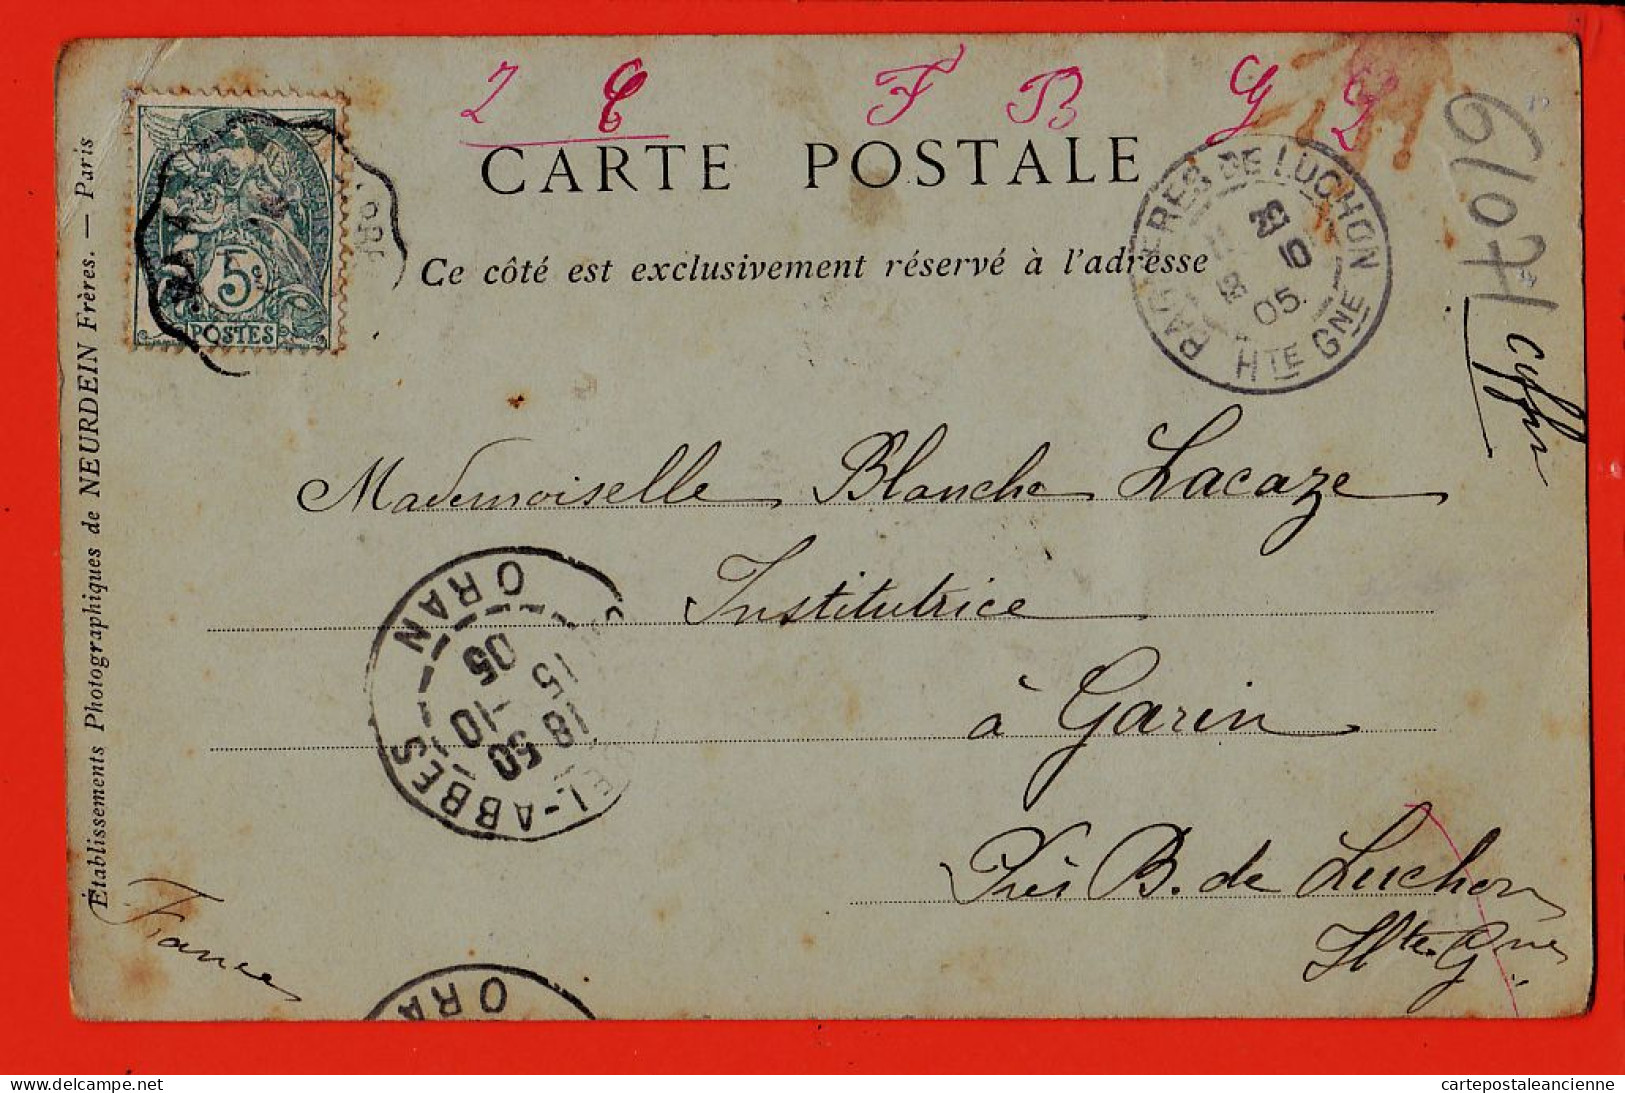 2 C F B G 2
CARTE POSTALE
Ce côté est exclusivement réservé à l'adresse
5c
POSTES
BAGNÈRES DE LUCHON
29
10
05
HTE GNE
61071
Mademoiselle Blanche Lacaze
Institutrice
à Garin
Près B. de Luchon
Hte Gne
France
EL-ABBES
ORAN
18 15
50
-10
05
ORA
Établissements Photographiques de NEURDEIN Frères. — Paris
cartepostaleancienne